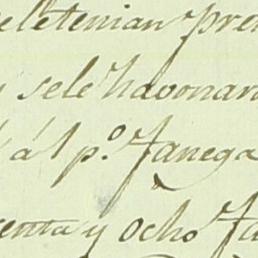 seletenian pre
sele havonar
á l p.º fanega
enta y ocho fa